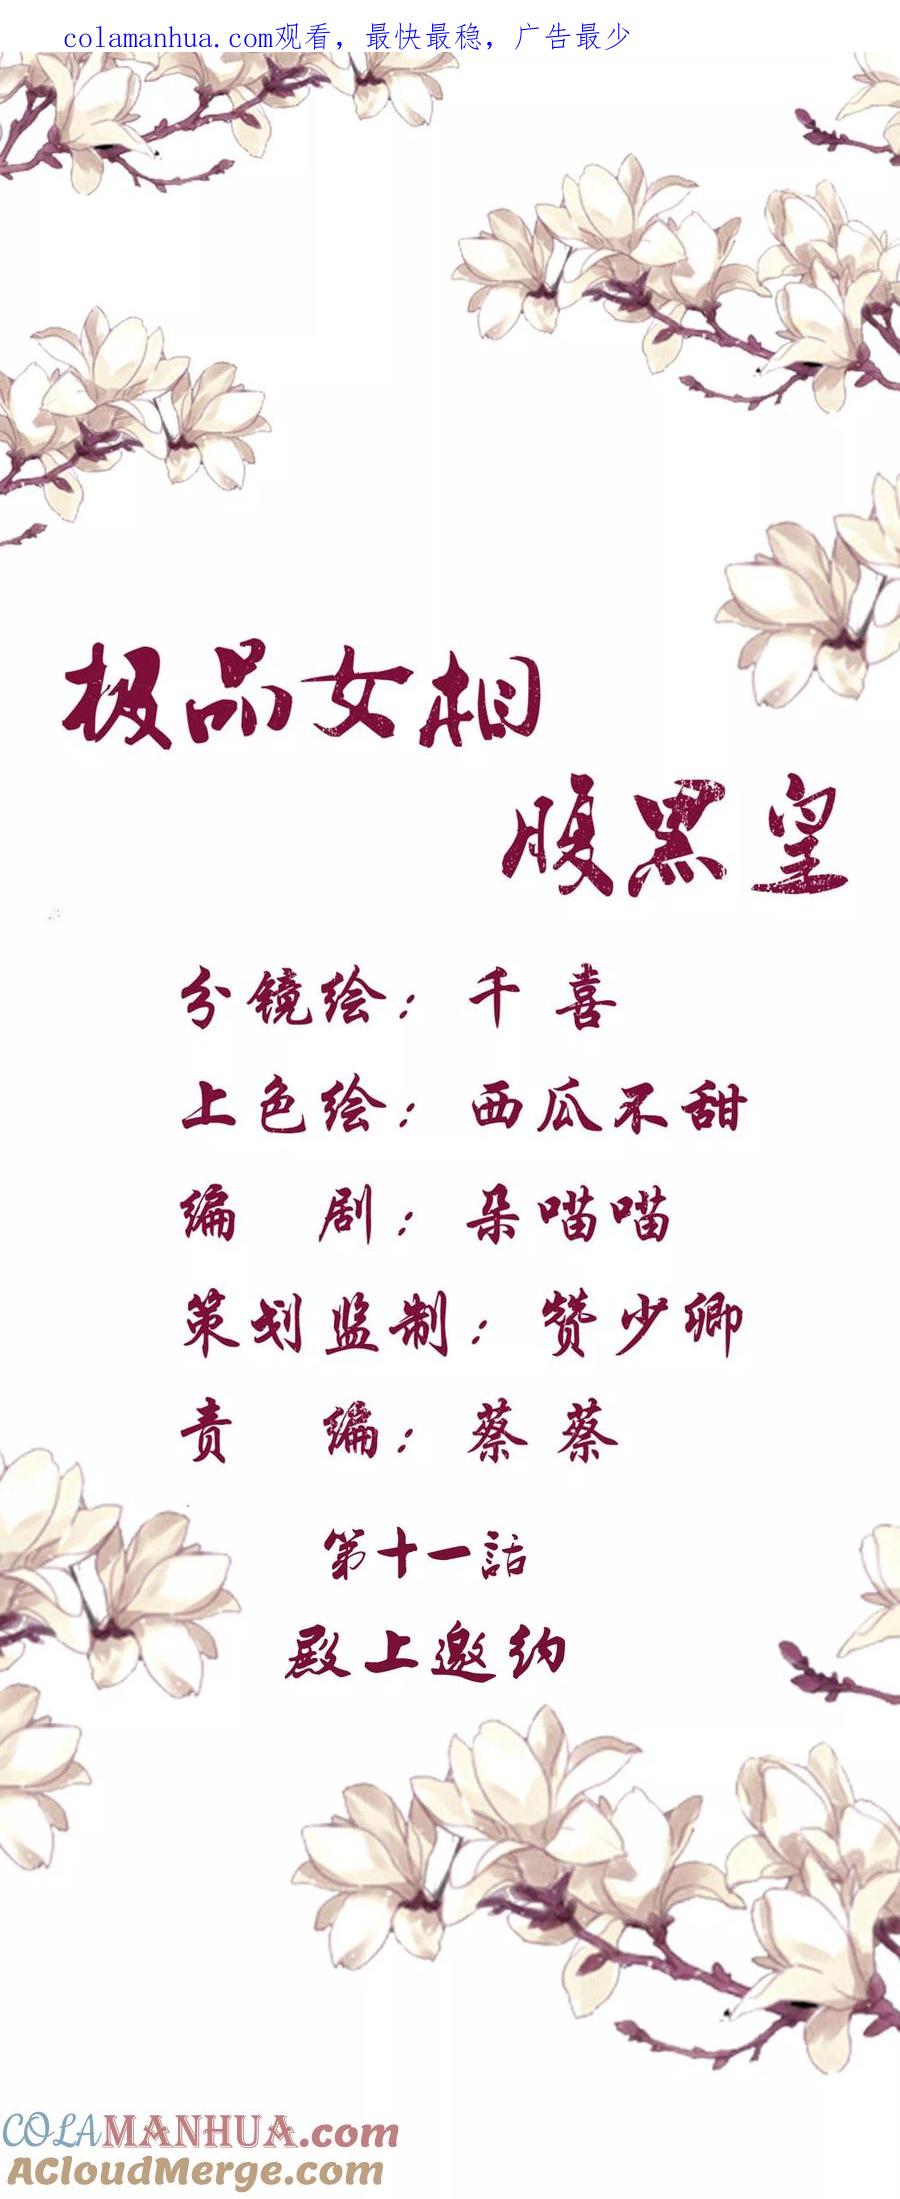 colamanhua.com观看，最快最稳，广告最少
极品女相
腹黑皇
分镜绘：千喜
上色绘：西瓜不甜
编剧：朵喵喵
策划监制：赞少卿
责编：蔡蔡
第十一話
殿上邀约
COLAMANHUA.com
ACloudMerge.com